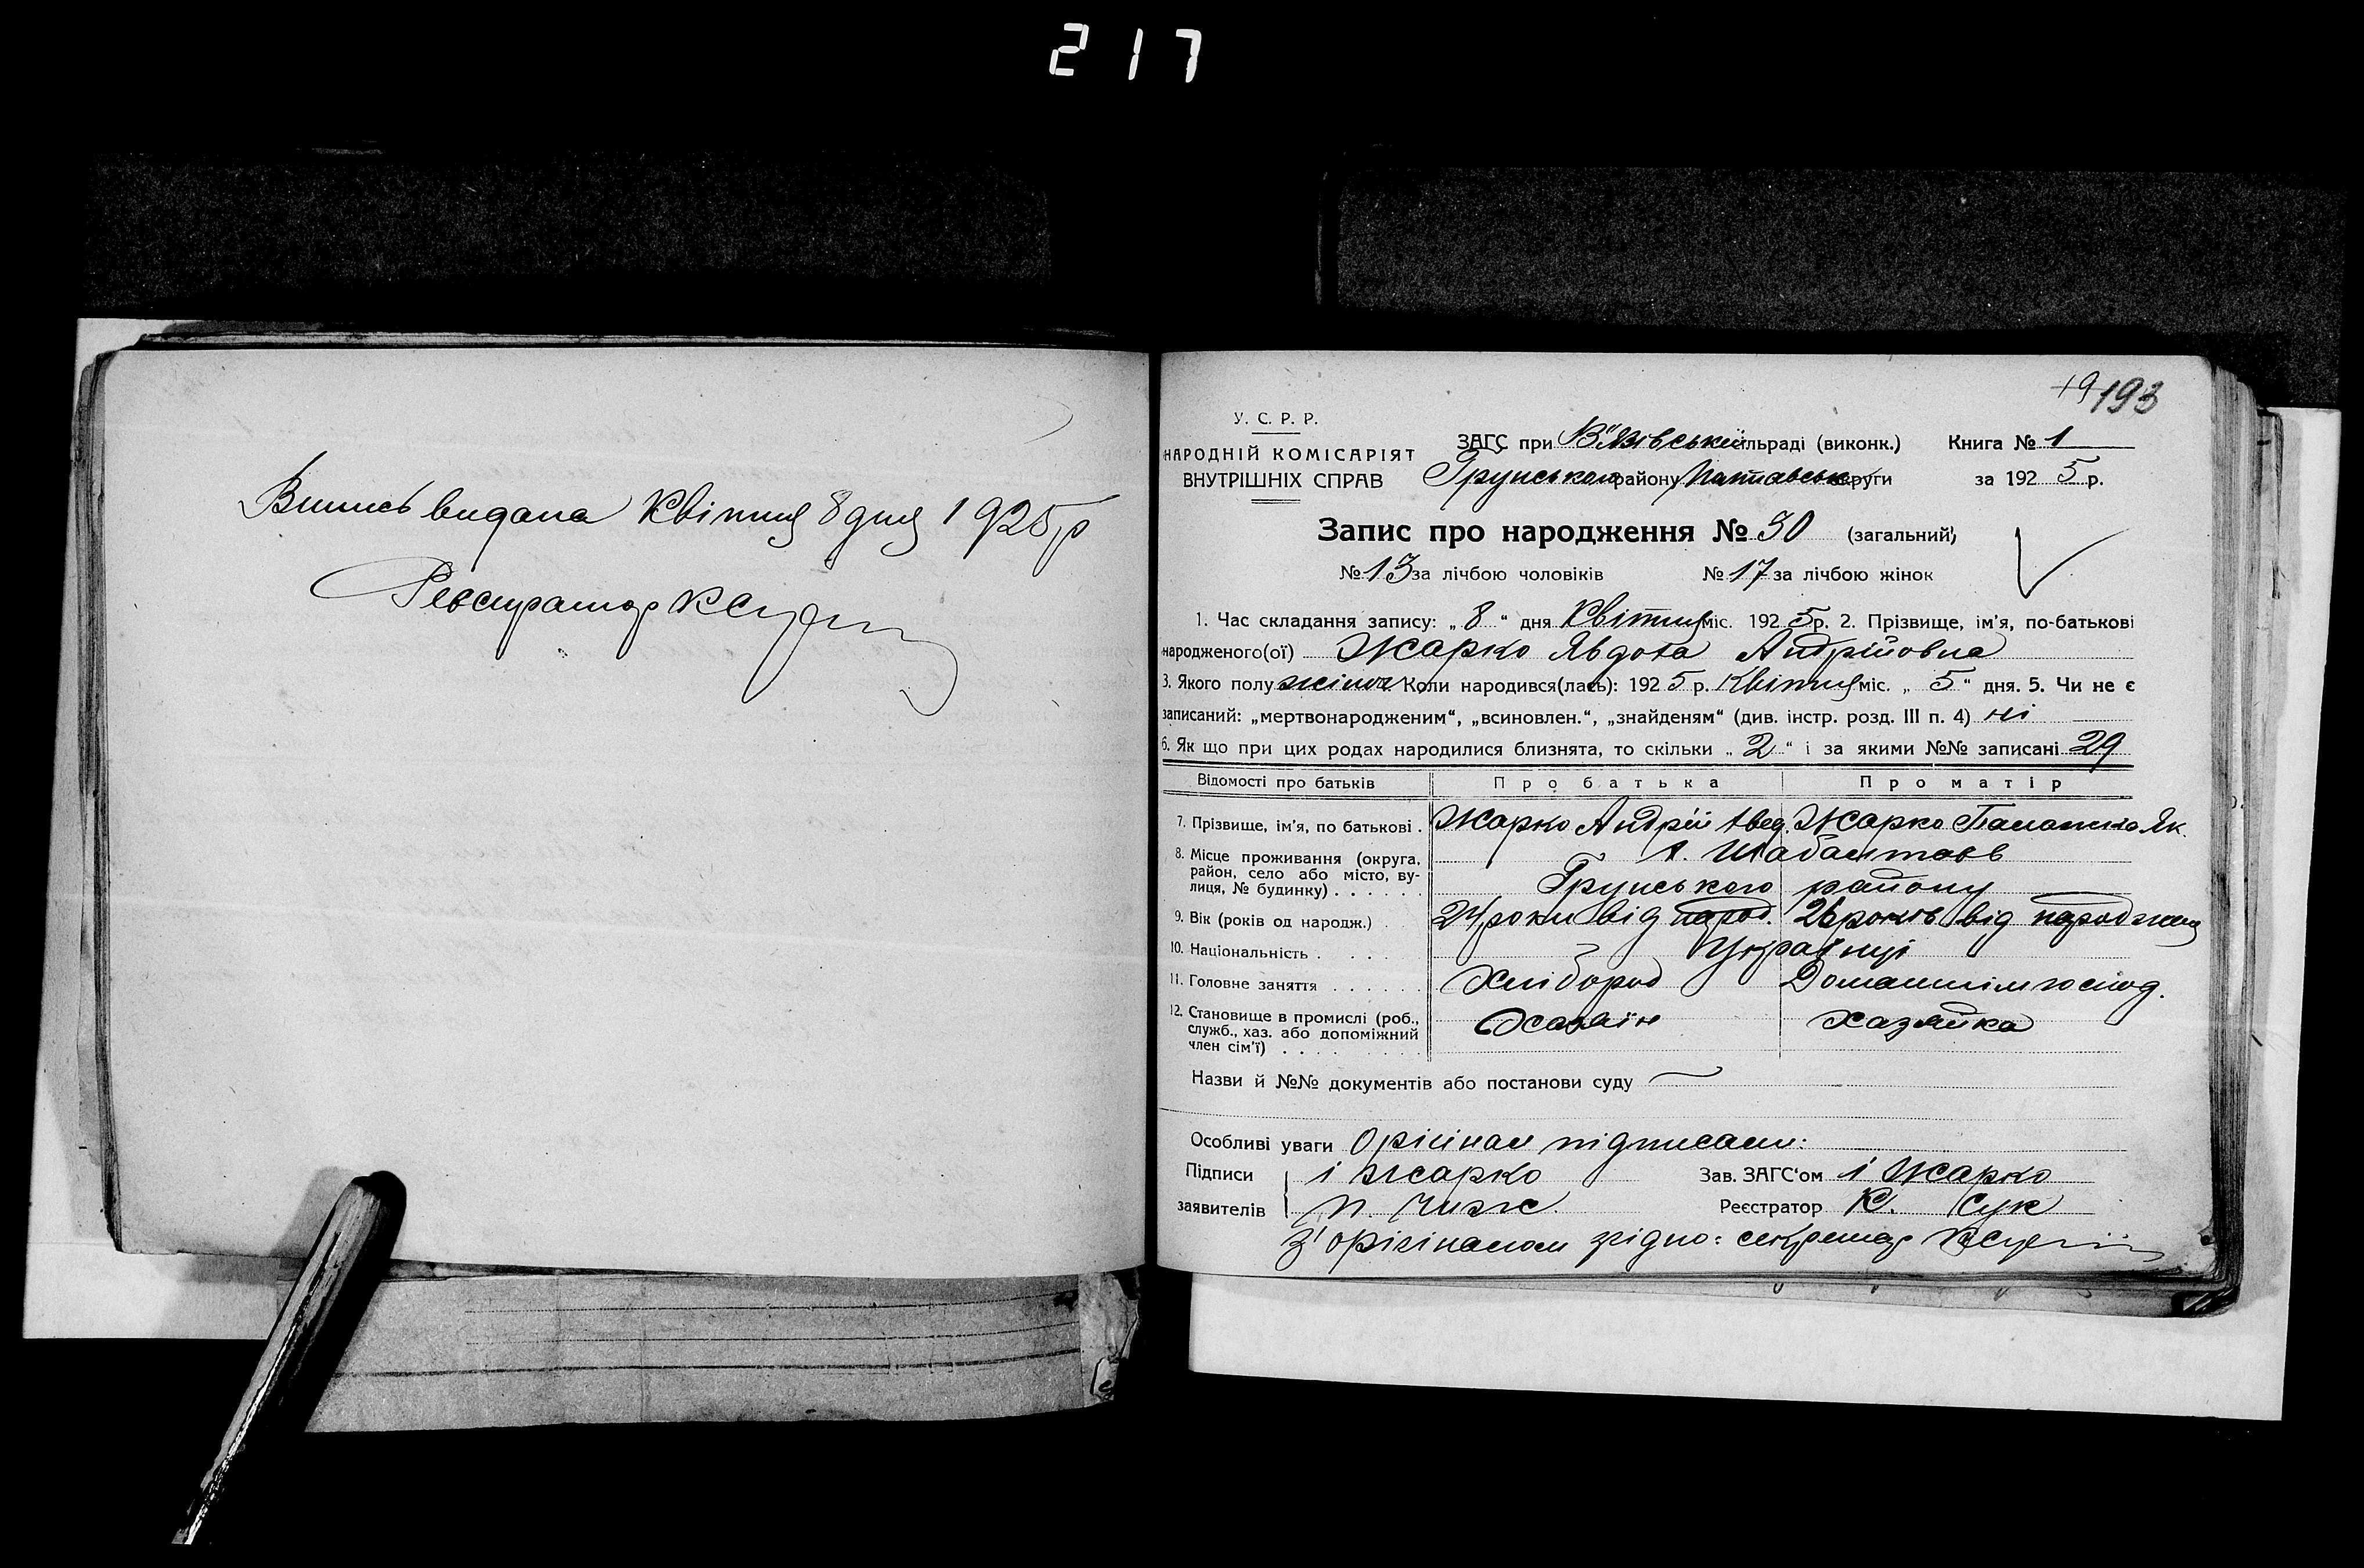 217
Випись видана Квітня 8 дня 1925 р
Реєстратор К Сук
19 193
У. С. Р. Р.
НАРОДНІЙ КОМІСАРІЯТ
ВНУТРІШНІХ СПРАВ
ЗАГС при В'язівській сільраді (виконк.) Книга № 1
Грунського району Полтавськ округи за 1925 р.
Запис про народження № 30 (загальний)
№ 13 за лічбою чоловіків № 17 за лічбою жінок
1. Час складання запису: „ 8 “ дня Квітня міс. 1925 р. 2. Прізвище, ім’я, по-батькові
народженого(ої) Жарко Явдоха Андрійовна
3. Якого полу жіноч Коли народився(лась): 1925 р. Квітня міс. „ 5 “ дня. 5. Чи не є
записаний: „мертвонародженим“, „всиновлен.“, „знайденям“ (див. інстр. розд. III п. 4) ні
6. Як що при цих родах народилися близнята, то скільки „ 2 “ і за якими №№ записані 29
Відомості про батьків Про батька Про матір
7. Прізвище, ім’я, по батькові . Жарко Андрій Авед. Жарко Паламка Як.
8. Місце проживання (округа, район, село або місто, вулиця, № будинку) . . . . . .
Грунського району
9. Вік (років од народж.) . 24 роки від народ. 26 років від народження
10. Національність . . . . Українці
11. Головне заняття . . . . . . Хлібороб Домашнім господ.
12. Становище в промислі (роб., Хазяїн Хазяйка
служб., хаз. або допоміжний
член сім’ї) . . . .
Назви й №№ документів або постанови суду
Особливі уваги Орігінал підписали:
Підписи і Жарко Зав. ЗАГС‘ом і Жарко
заявителів П. Чиж. Реєстратор К. Сук
З' орігіналом згідно: секретар К Сук